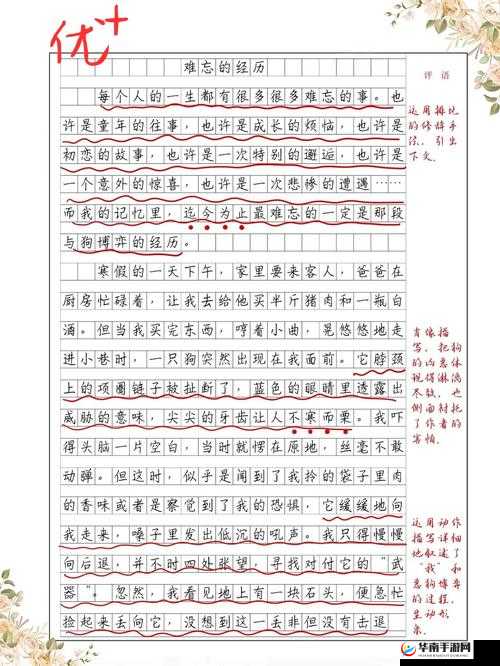 优+
难忘的经历
评语
每个人的一生都有很多很多难忘的事。也
许是童年的往事，也许是成长的烦恼，也许是
初恋的故事，也许是一次特别的邂逅，也许是
一个意外的惊喜，也许是一次悲惨的遭遇……
而我的记忆里，迄今为止最难忘的一定是那段
与狗博弈的经历。
寒假的一天下午，家里要来客人，爸爸在
厨房忙碌着，让我去给他买半斤猪肉和一瓶白
酒。但当我买完东西，哼着小曲，晃悠悠地走
进小巷时，一只狗突然出现在我面前。它脖颈
上的项圈链子被扯断了，蓝色的眼睛里透露出
威胁的意味，尖尖的牙齿让人不寒而栗。我吓
得头脑一片空白，当时就愣在原地，丝毫不敢
动弹。但这时，似乎是闻到了我拎的袋子里肉
的香味或者是察觉到了我的恐惧，它缓缓地向
我走来，嗓子里发出低沉的吼声。我只得慢慢
向后退，并不时四处张望，寻找对付它的“武
器”。忽然，我看见地上有一块石头，便急忙
捡起来丢向它，没想到这一丢非但没有击退
运用排比
的修辞手
法，引出
下文。
肖像描
写，把狗
的凶恶体
现得淋漓
尽致，也
侧面衬托
了作者的
害怕。
运用动作
描写详细
地叙述了
“我”和
恶狗博弈
的过程，
生动形
象。
华南手游网